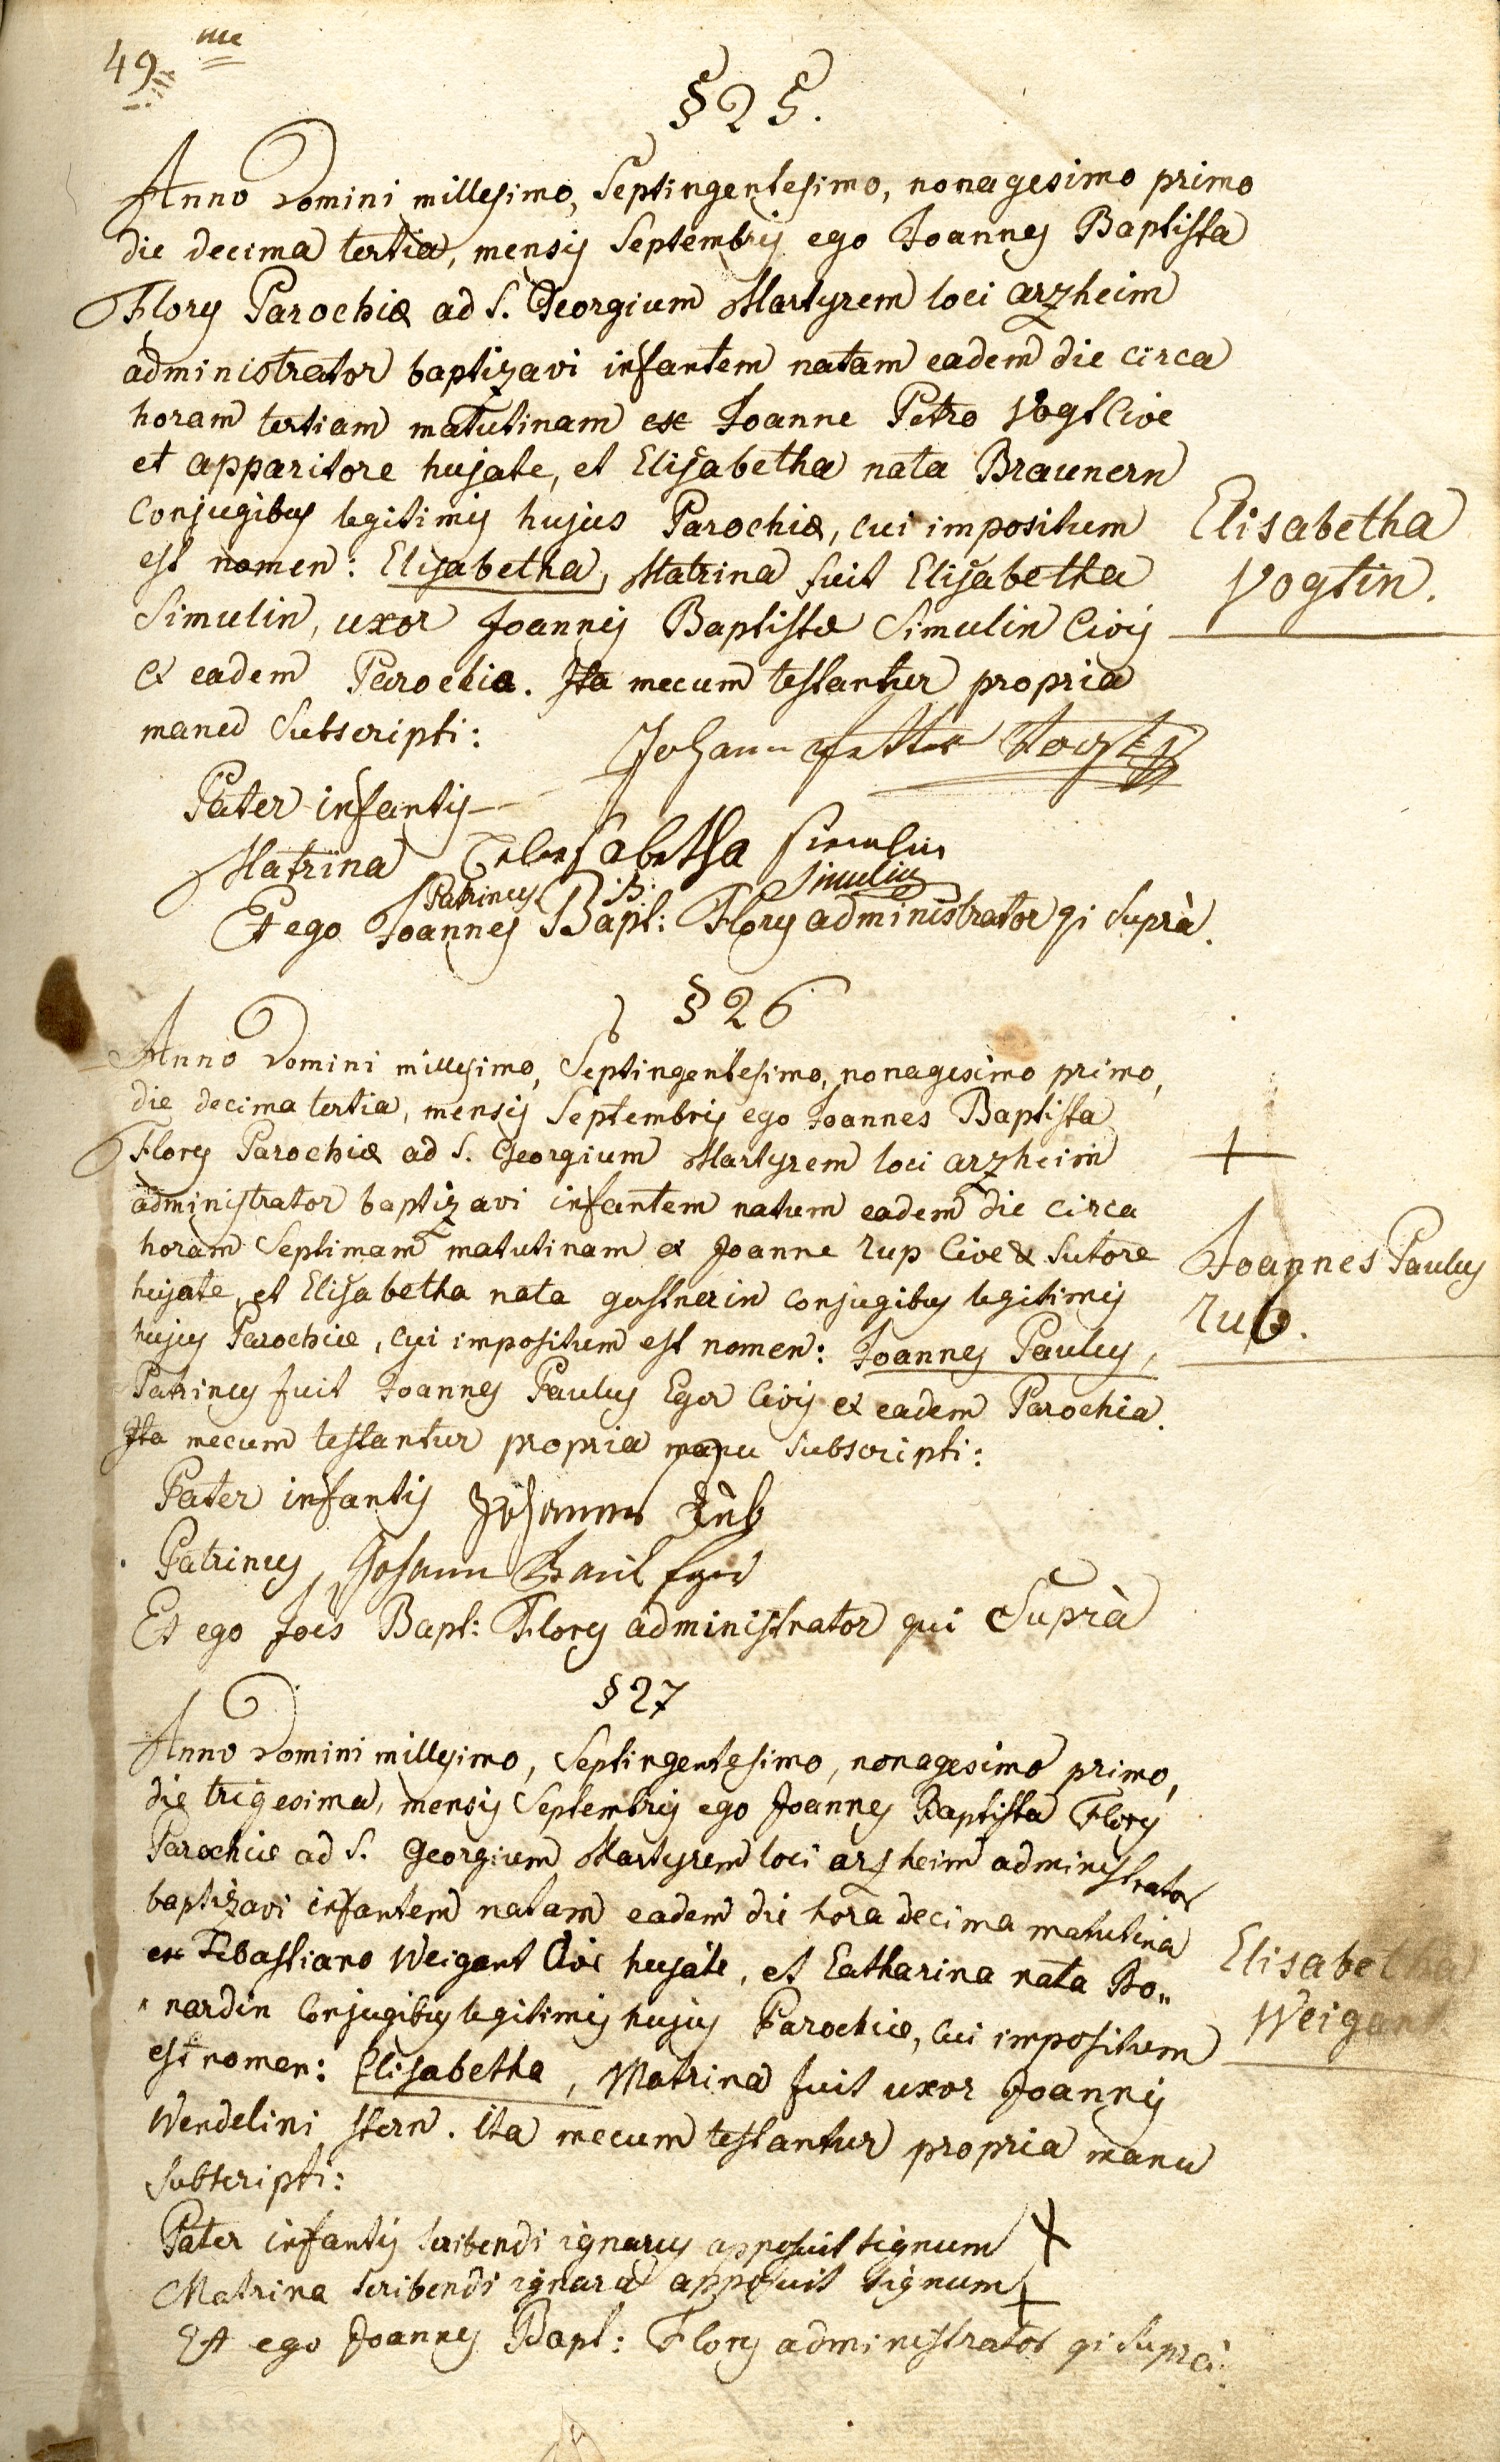 49 me
§ 25.
Anno Domini millesimo, Septingentesimo, nonagesimo primo
die decima tertia, mensis Septembris ego Joannes Baptista
Flory Parochiæ ad S. Georgium Martyrem loci arzheim
administrator baptizavi infantem natam eadem die circa
horam tertiam matutinam ex Joanne Petro Vogt Cive
et apparitore hujate, et Elisabetha nata Braunern
Conjugibus legitimis hujus Parochiæ, cui impositum
est nomen: Elisabetha, Matrina fuit Elisabetha
Simulin, uxor Joannis Baptistæ Simulin Civis
ex eadem Parochia. Ita mecum testantur propria
manu Subscripti:
Elisabetha
Vogtin.
Pater infantis Johann
Matrina Simulin
Patrinus B. Simulin
Et ego Joannes Bapt: Flory administrator qi Suprà.
§ 26
Anno Domini millesimo, Septingentesimo, nonagesimo primo,
die decima tertia, mensis Septembris ego Joannes Baptista
Flory Parochiæ ad S. Georgium Martyrem loci arzheim
administrator baptizavi infantem natum eadem die circa
horam Septimam matutinam ex Joanne Rup Cive & Sutore
hujate, et Elisabetha nata gastnerin Conjugibus legitimis
hujus Parochiæ, cui impositum est nomen: Joannes Paulus,
Patrinus fuit Joannes Paulus Eger Civis ex eadem Parochia.
Ita mecum testantur propria manu Subscripti:
+
Joannes Paulus
Rub.
Pater infantis Johannes Rub
Patrinus Johann Eger
Et ego Joes Bapt: Flory administrator qui Suprà
§ 27
Anno Domini millesimo, Septingentesimo, nonagesimo primo,
die trigesima, mensis Septembris ego Joannes Baptista Flory
Parochiæ ad S. Georgium Martyrem loci arzheim administrator
baptizavi infantem natam eadem die hora decima matutina
ex Sebastiano Weigant Cive hujate, et Catharina nata
nardin Conjugibus legitimis hujus Parochiæ, cui impositum
est nomen: Elisabetha, Matrina fuit uxor Joannis
Wendelini Stern. Ita mecum testantur propria manu
Subscripti:
Elisabetha
Weigant.
Pater infantis scribendi ignarus apposuit signum X
Matrina scribendi ignara apposuit signum +
Et ego Joannes Bapt: Flory administrator qi Suprà.